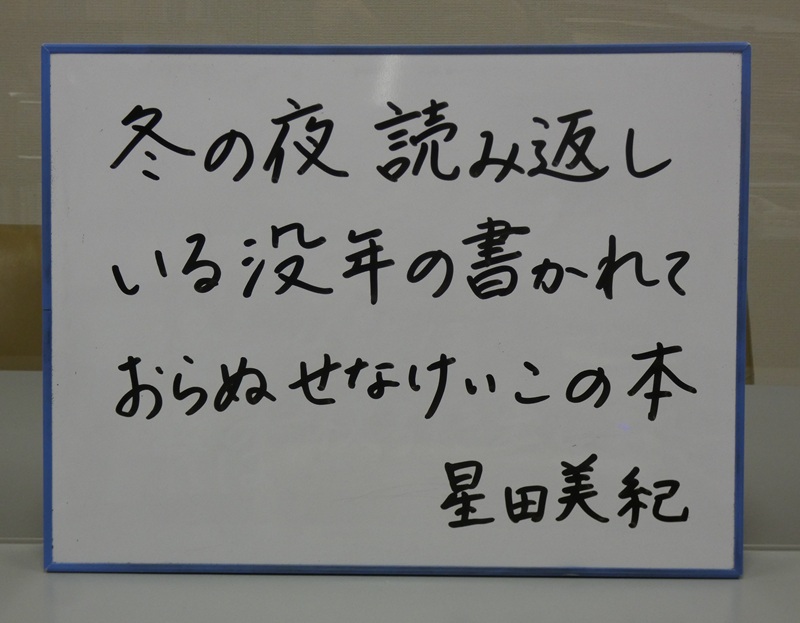 冬の夜 読み返し
いる没年の書かれて
おらぬ せなけいこの本
星田美紀